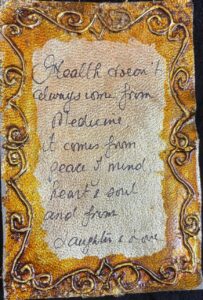 Health doesn't
always come from
Medicine
it comes from
peace of mind,
heart & soul
and from
Laughter & Love